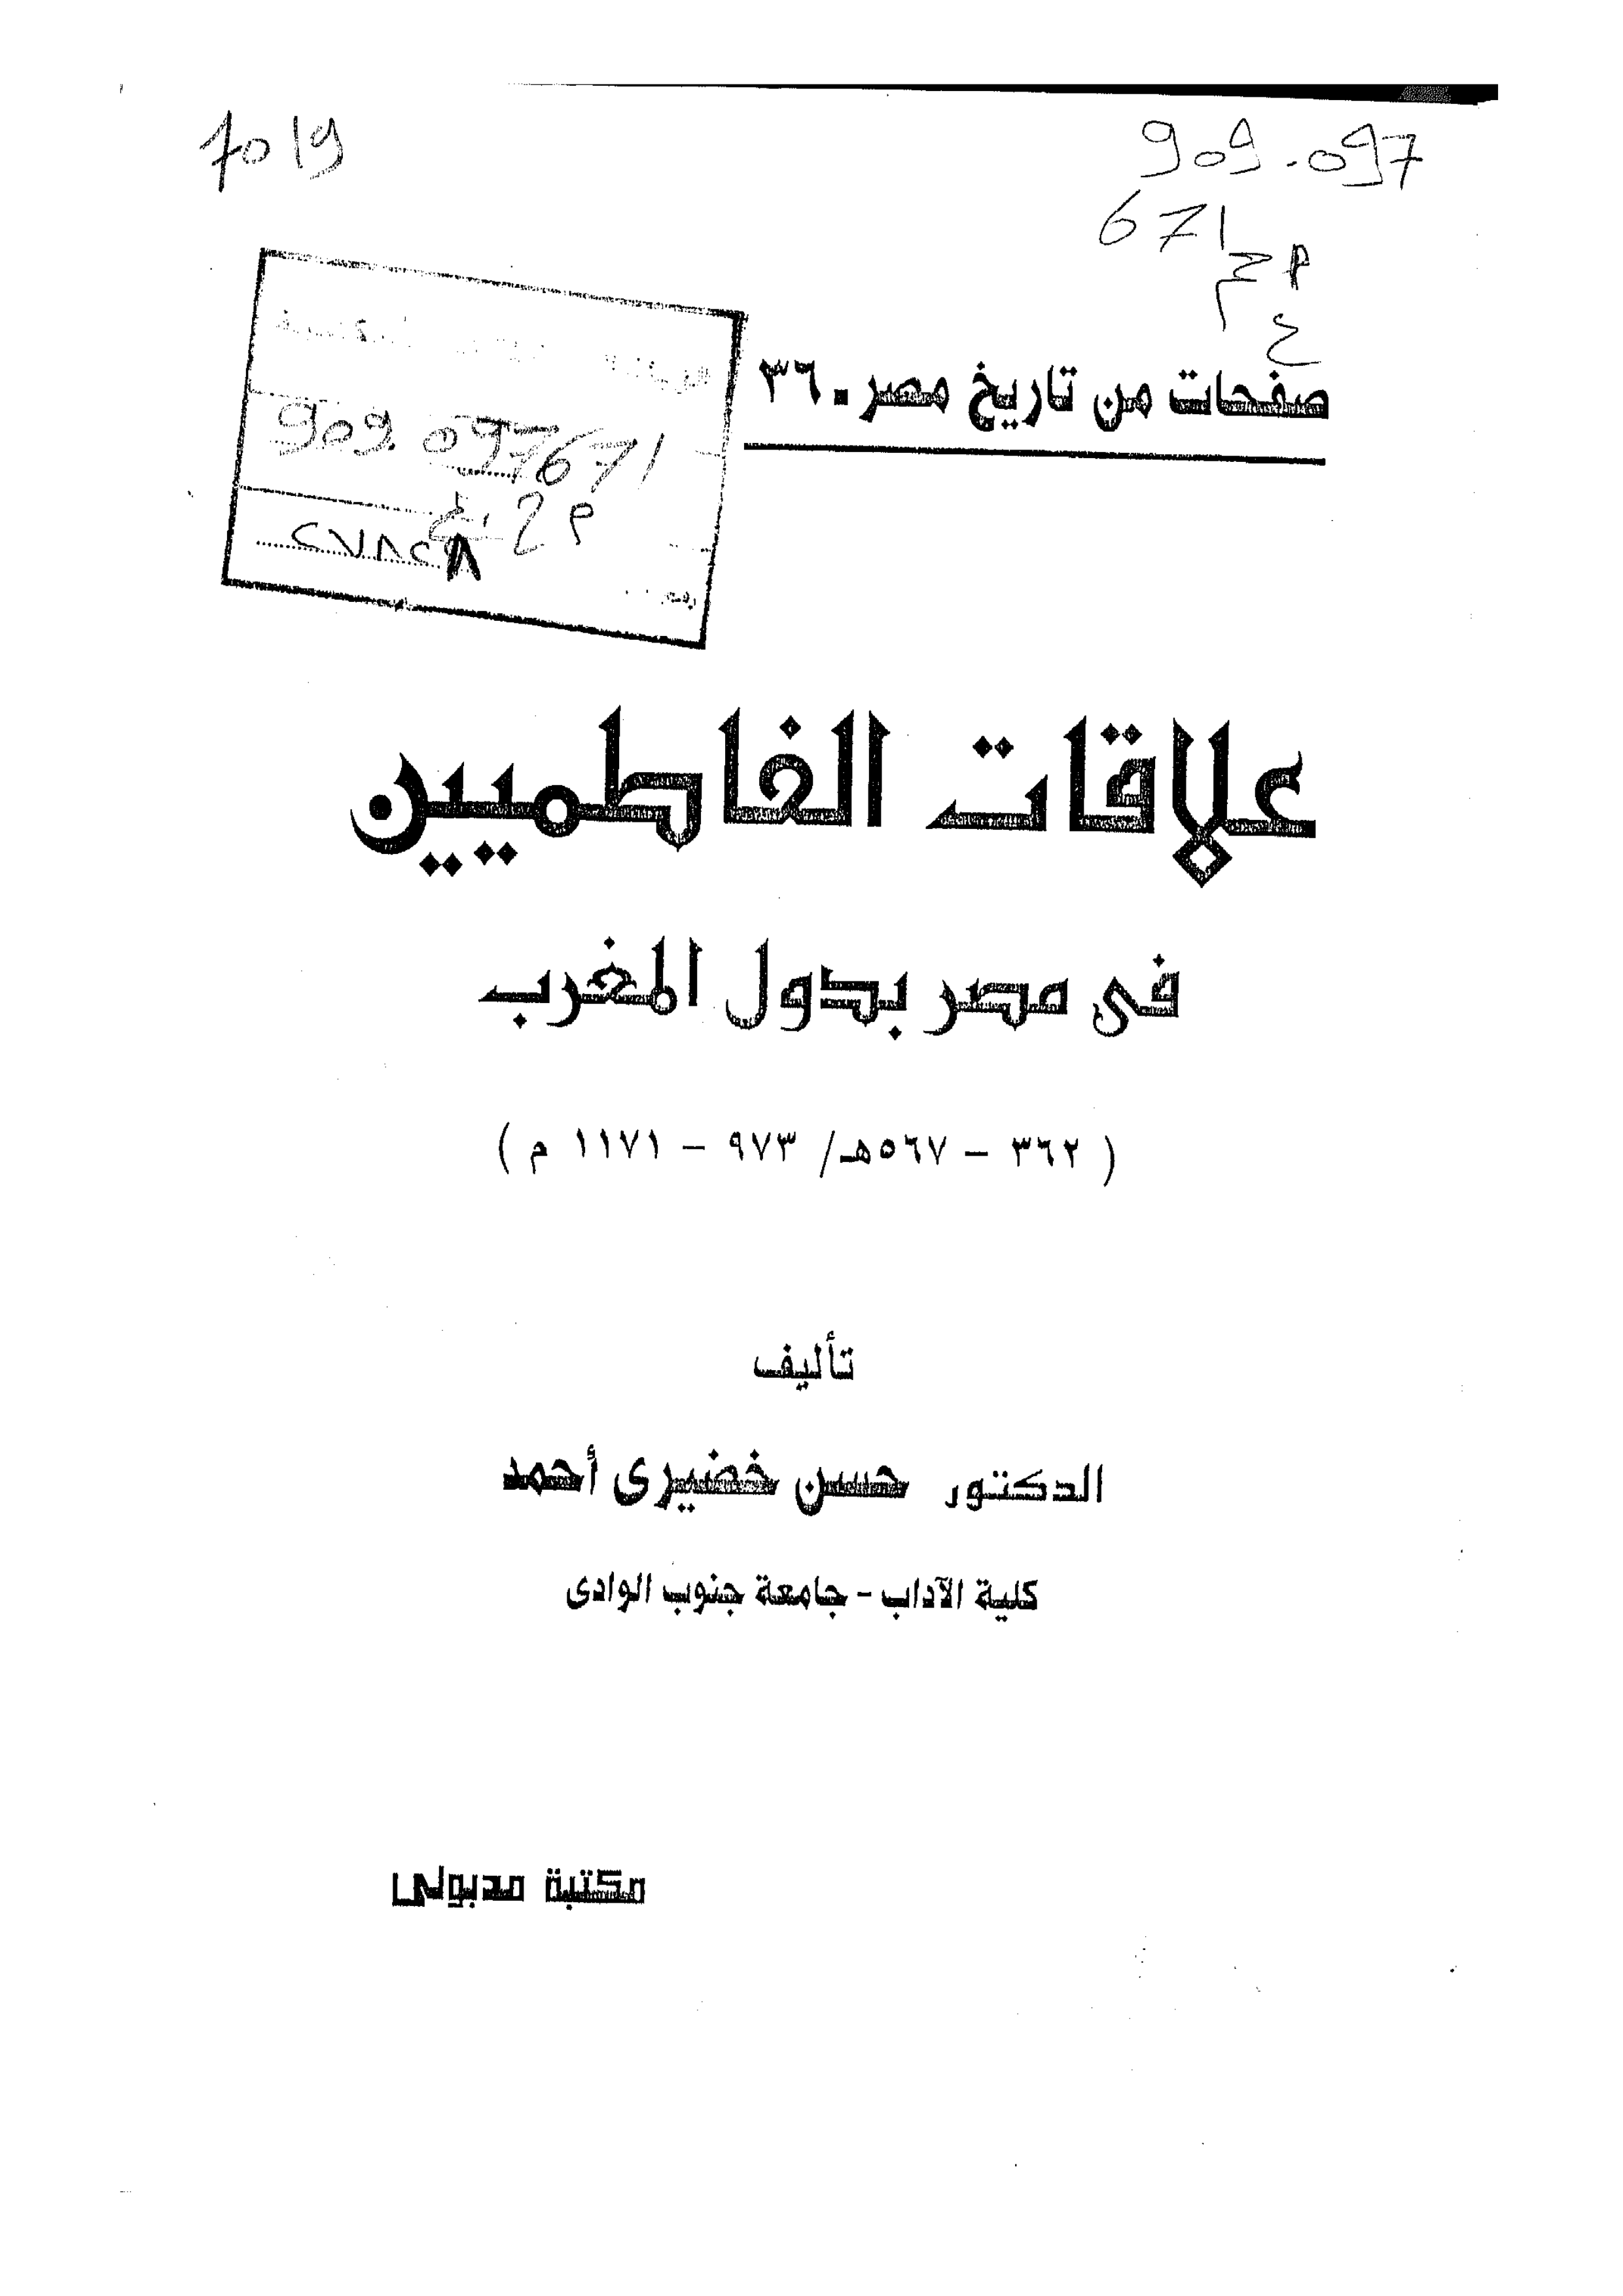 7019
909.097
671
ح م
ع
909.097671
ع.ح م
٢٧٨٢٨
صفحات من تاريخ مصر. ٣٦
علاقات الفاطميين
فى مصر بدول المغرب
( ٣٦٢ – ٥٦٧هـ/ ٩٧٣ – ١١٧١ م )
تأليف
الدكتور حسن خضيرى أحمد
كلية الآداب - جامعة جنوب الوادى
مكتبة مدبولى